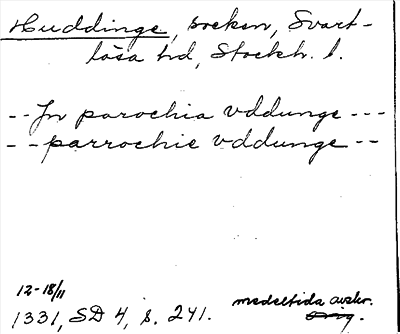 Huddinge, socken, Svart-
lösa hd, Stockh. l.
--In parochia vddunge ---
--parrochie vddunge --
12-18/11
medeltida avskr.
1331, SD 4, s. 241. orig.